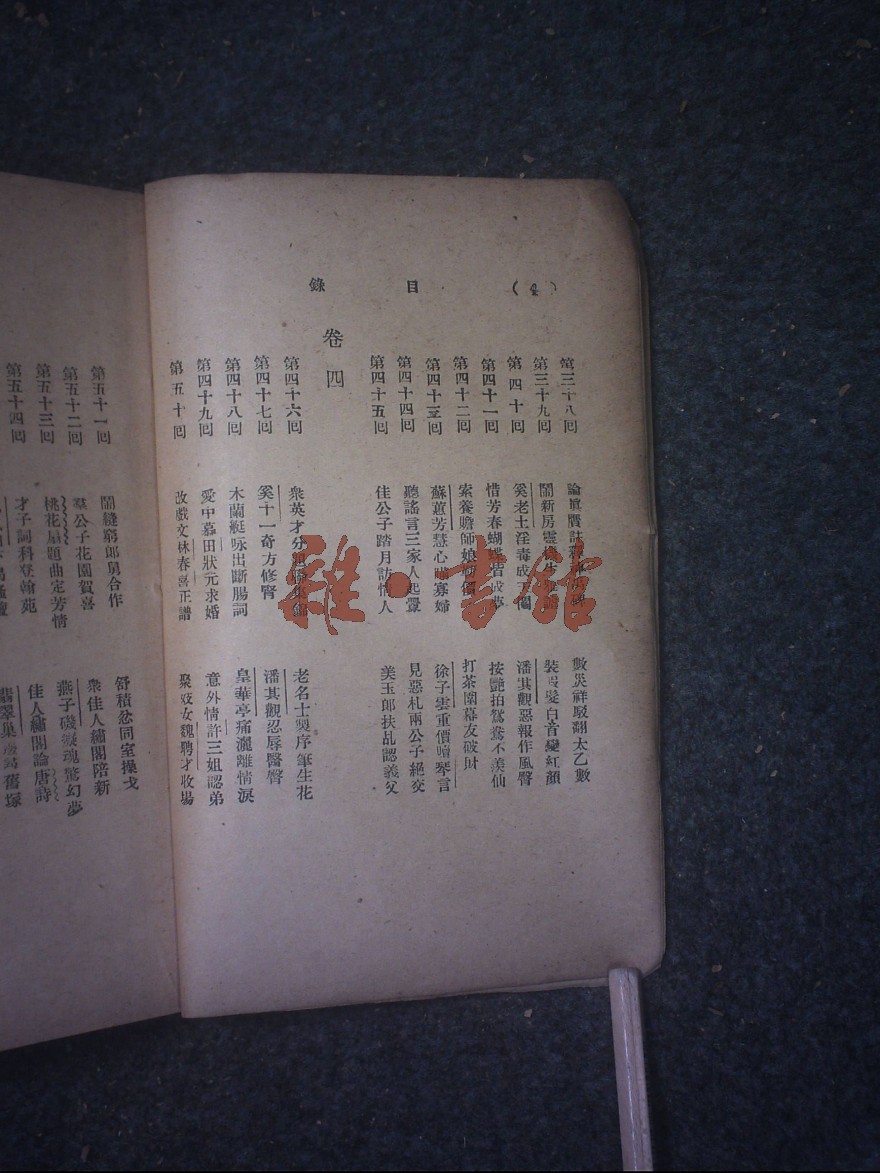 (4)　目　錄
第三十八回　論眞贋　數災祥駁翻太乙數
第三十九回　鬧新房靈　裝假髮白首變紅顏
第四十回　奚老土淫毒成　潘其觀惡報作風臀
第四十一回　惜芳春蝴蝶皆成夢　按艷拍鴛鴦不羨仙
第四十二回　索養贍師娘　打茶圍幕友破財
第四十三回　蘇蕙芳慧心　寡婦　徐子雲重價贖琴言
第四十四回　聽謠言三家人起釁　見惡札兩公子絕交
第四十五回　佳公子踏月訪情人　美玉郎扶乩認義父
卷四
第四十六回　衆英才分　老名士製序筆生花
第四十七回　奚十一奇方修腎　潘其觀忍辱醫臀
第四十八回　木蘭艇咏出斷腸詞　皇華亭痛灑離情淚
第四十九回　愛中慕田狀元求婚　意外情許三姐認弟
第五十回　改戲文林春喜正譜　聚妓女魏聘才收場
第五十一回　鬧縫窮郎舅合作　舒積忿同室操戈
第五十二回　羣公子花園賀喜　衆佳人繡閣陪新
第五十三回　桃花扇題曲定芳情　燕子磯癡魂驚幻夢
第五十四回　才子詞科登翰苑　佳人繡閣論唐詩
翡翠巢　舊塚
雜·書館